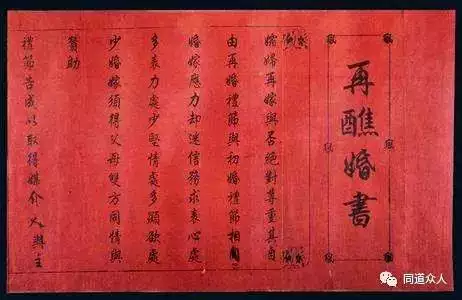 再醮婚書
孀婦再嫁與否絕對尊重其自
由再婚禮節與初婚禮節相同
婚嫁應力却迷信務求衷心處
多衷力處少堅情處多顯欲處
少婚嫁須得父母雙方同情與
贊助
禮節告成以取得媒介人
主
同道众人